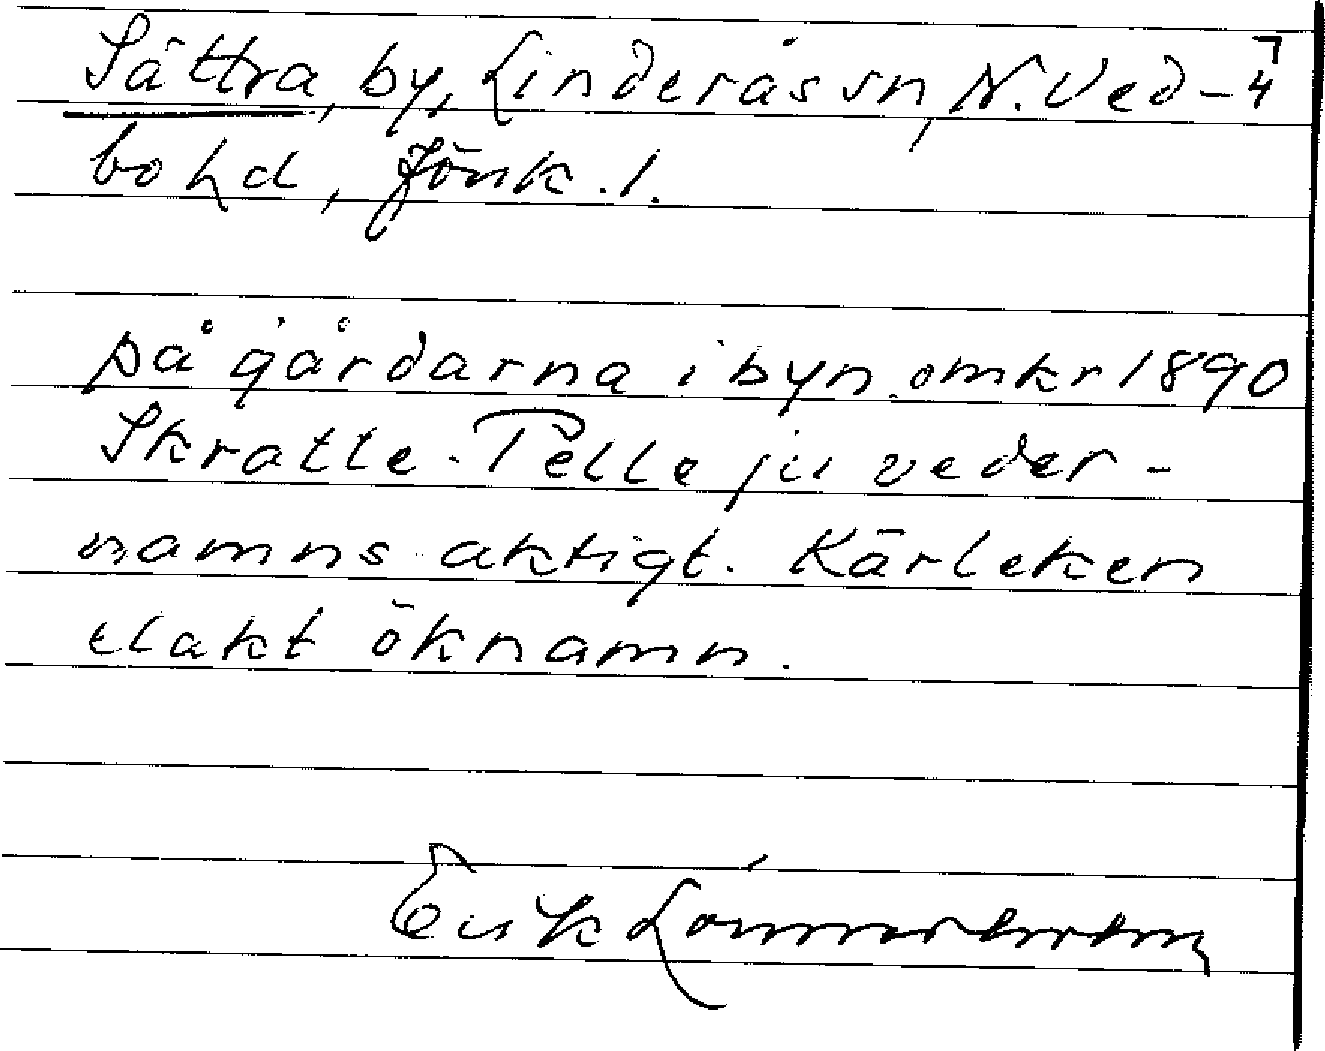 Sättra, by, Linderås sn, N. Ved- 4
bo hd, Jönk. l.
på gårdarna i byn omkr 1890
Skratte-Pelle ju veder-
namns aktigt. Kärleken
elakt öknamn.
Erik